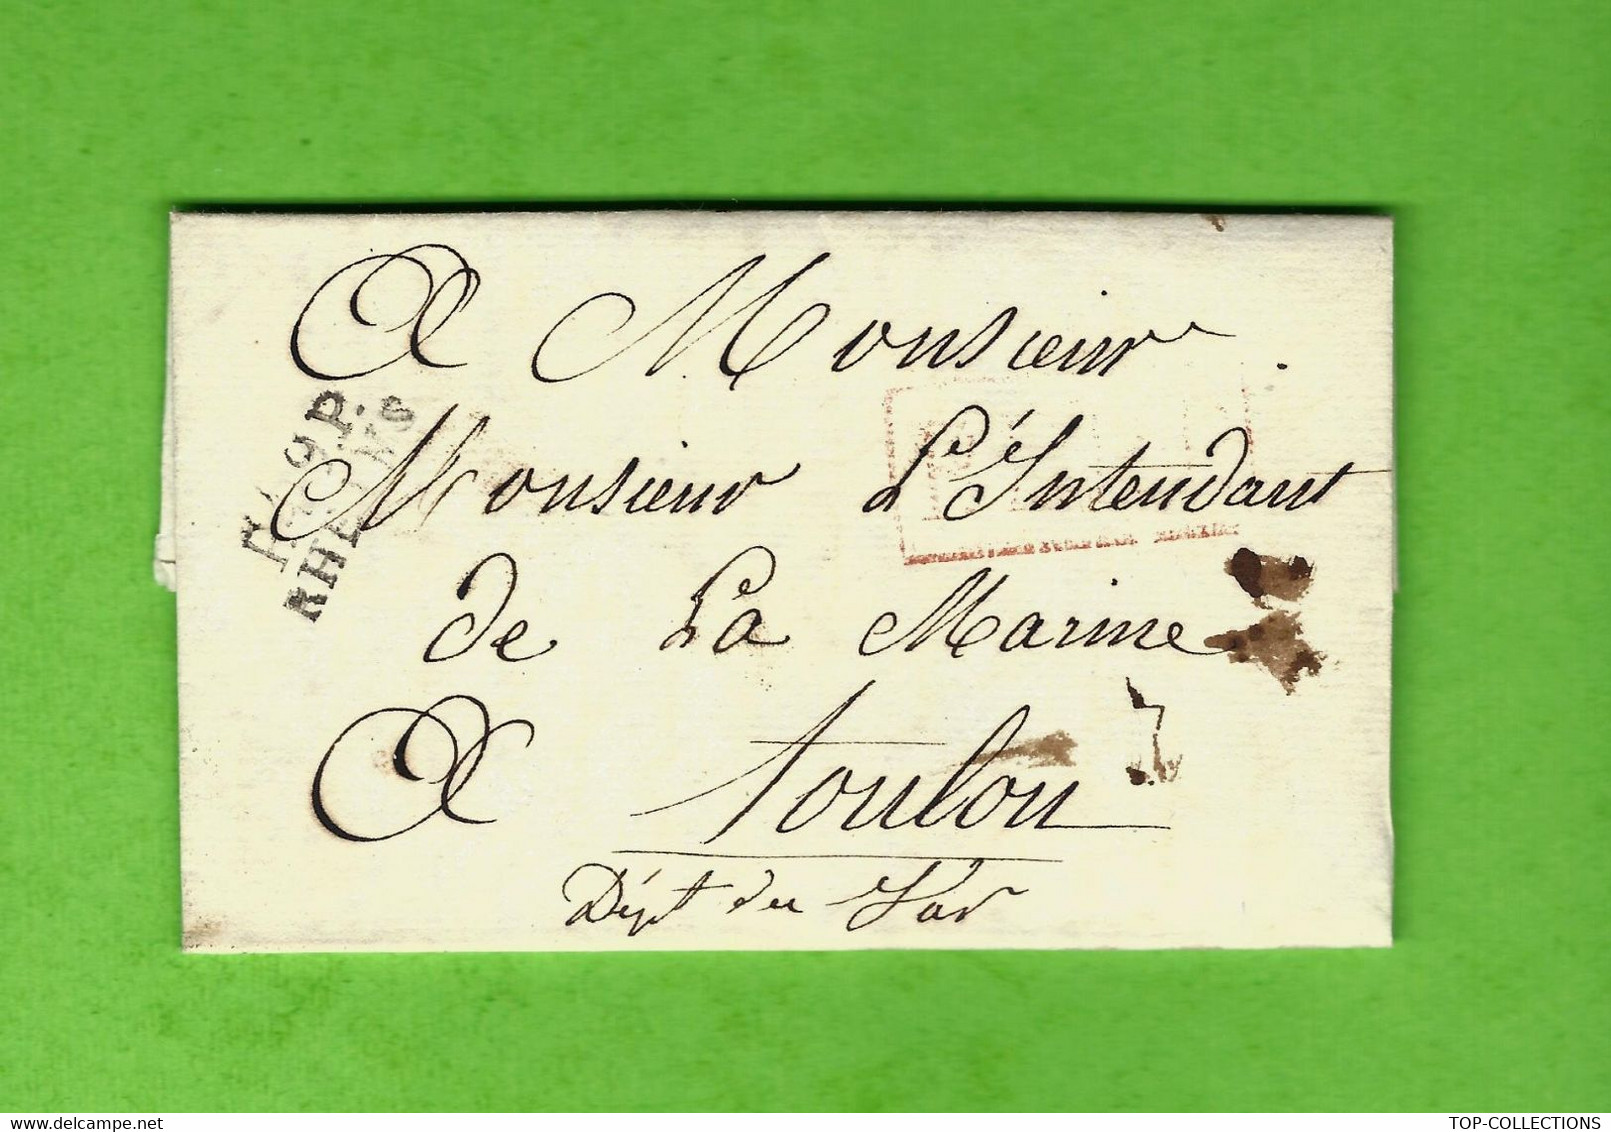 A Monsieur
Monsieur L'Intendant
de La Marine
A Toulon
Dépt du Var
P. P.
TOP-COLLECTIONS
delcampe.net